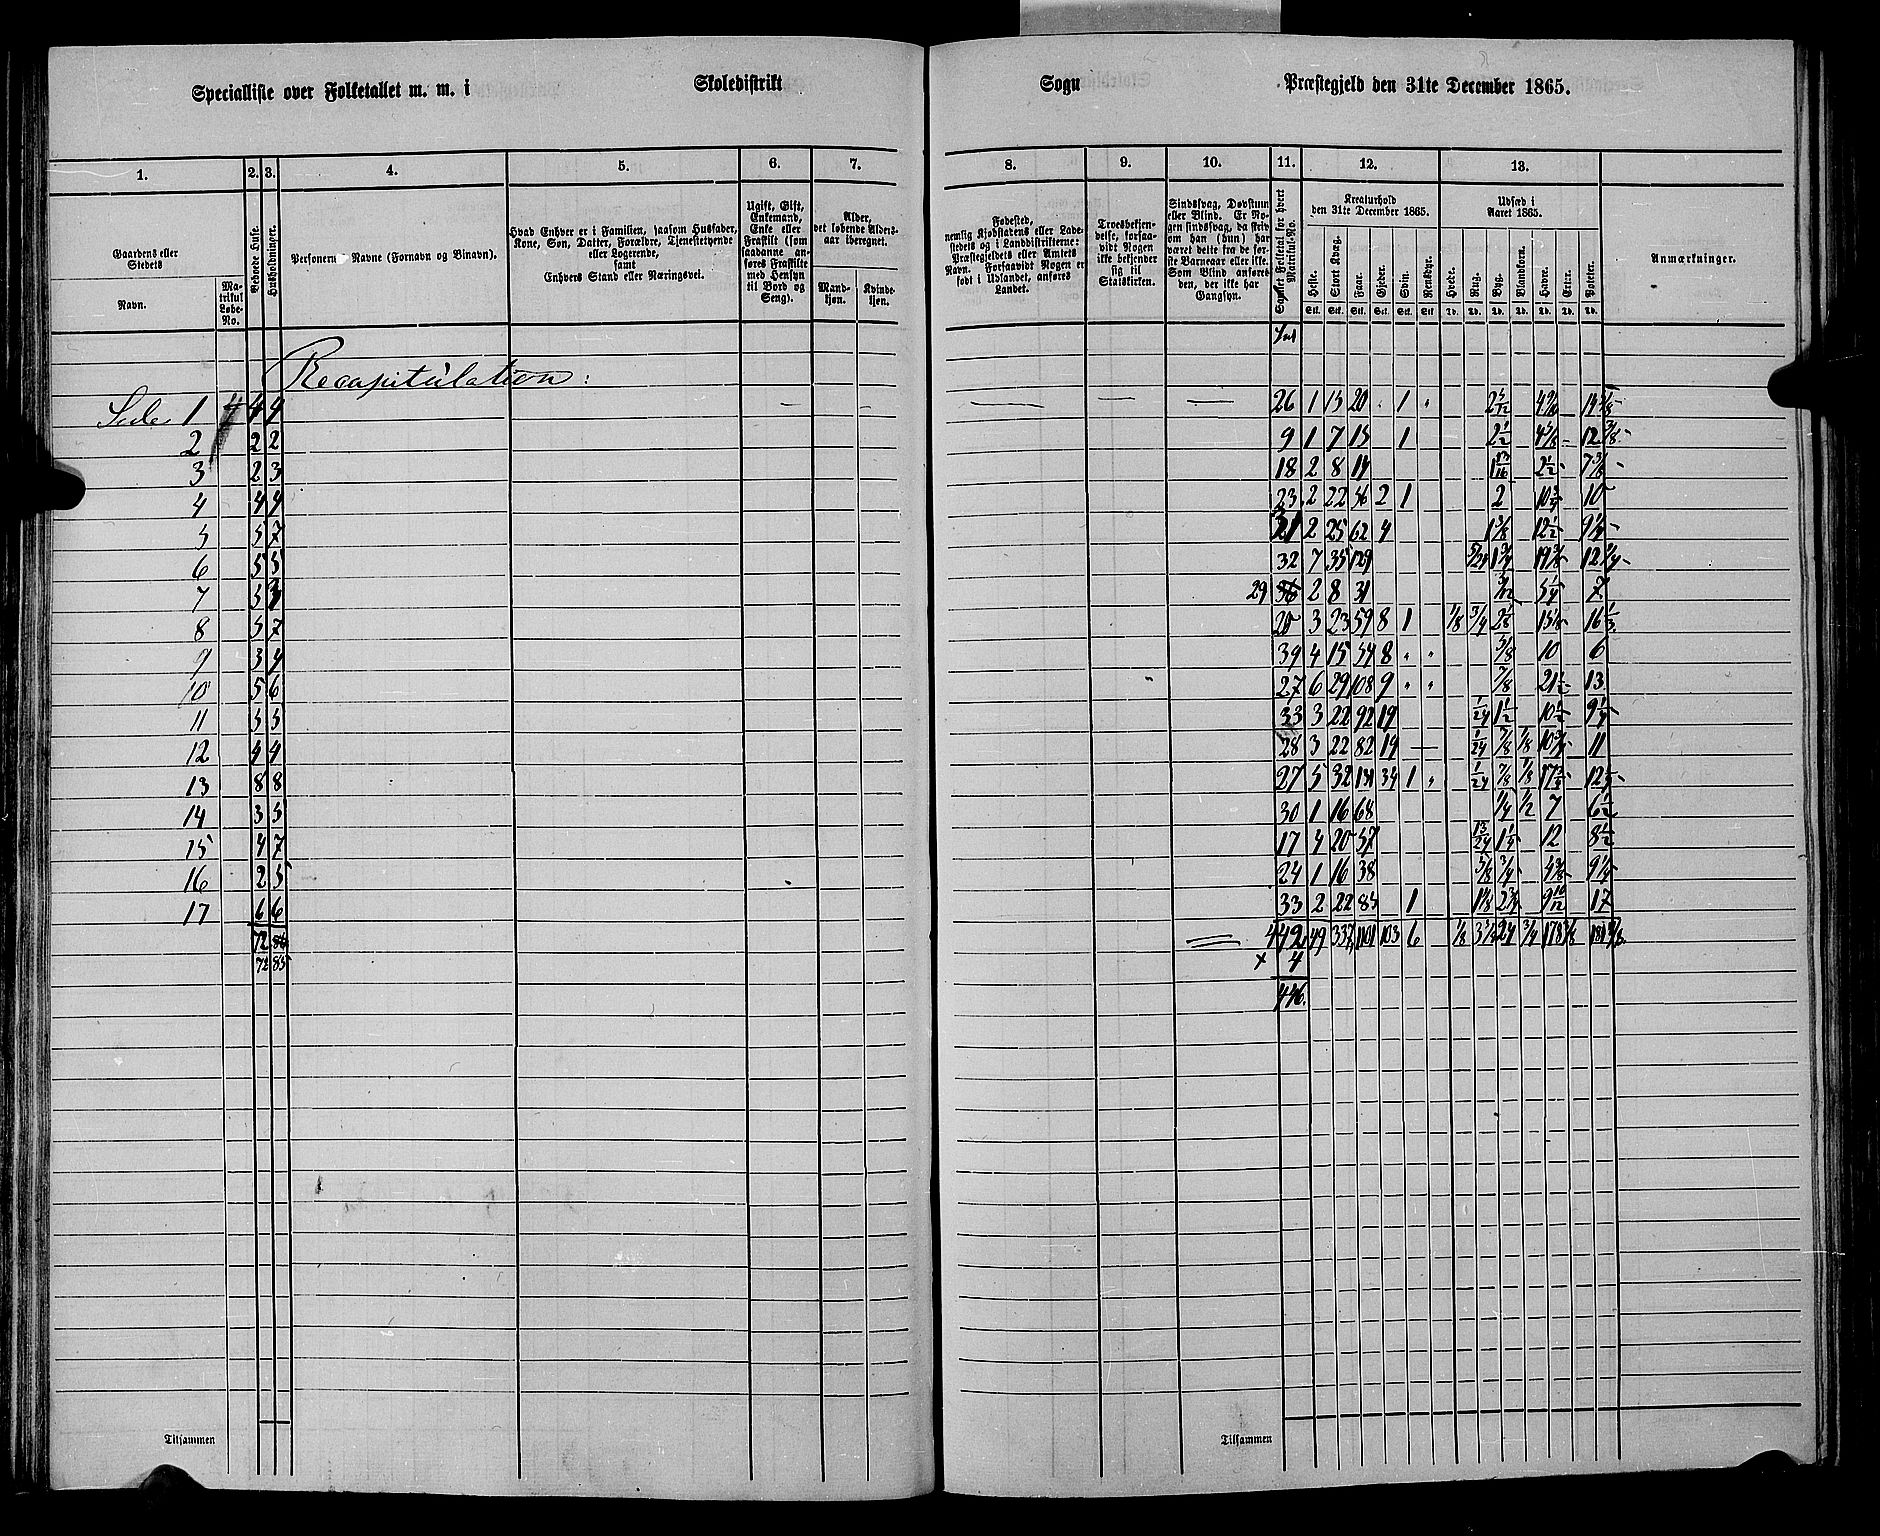 Specialliste over Folketallet m. m. i Skoledistrikt Sogn Præstegjeld den 31te December 1865.
1. 2. 3. 4. 5. 6. 7. 8. 9. 10. 11. 12. 13.
Gaardens eller Stedets
Navn.
Matrikul Løbe-No.
Beboede Huse.
Husholdninger.
Personernes Navne (Fornavn og Binavn).
Hvad Enhver er i Familien, saasom Husfader, Kone, Søn, Datter, Forældre, Tjenestetyende eller Logerende, samt Enhvers Stand eller Næringsvei.
Ugift, Gift, Enkemand, Enke eller Fraskilt (som saadanne anføres Fraskilte med Hensyn til Bord og Seng).
Alder, det løbende Alders-aar iberegnet.
Mandkjøn. Kvindekjøn.
Fødested, nemlig Kjøbstadens eller Ladestedets og i Landdistrikterne: Præstegjeldets eller Amtets Navn. Forsaavidt Nogen er født i Udlandet, anføres Landet.
Troesbekjendelse, forsaavidt Nogen ikke bekjender sig til Statskirken.
Sindssvag, Døvstum eller Blind. Er Nogen sindssvag, da skrives om han (hun) har været dette fra de første Barneaar eller ikke. Som Blind anføres den, der ikke har Gangsyn.
Samlet Folketal for hvert Matrikul-No.
Kreaturhold den 31te December 1865.
Heste. Stort Kvæg. Faar. Gjeder. Svin. Rensdyr.
Stk. Stk. Stk. Stk. Stk. Stk
Udsæd i Aaret 1865.
Hvede. Rug. Byg. Blandkorn. Havre. Erter. Poteter.
Td. Td. Td. Td. Td. Td. Td.
Anmærkninger.
Recapitulation:
Side 1 4 4 26 1 13 20 1
2 2 2 9 1 7 15 1 2 1/2 12 3/8
3 2 3 18 2 8 14 1 13/16 2 1/2 7 3/8
4 4 4 23 2 22 56 2 1 2 10 3/4 10
5 5 7 21 2 25 62 4 1 5/8 12 1/2 9 1/4
6 5 5 32 7 35 129 5/24 1 3/4 19 3/8 12 3/4
7 5 29 36 2 8 31 5 1/4 7
8 5 7 20 3 23 59 8 1 1/8 3/4 2 1/8 16 1/3
9 3 4 39 4 15 54 8 5/8 10 6
10 5 6 27 6 29 108 9 7/8 21 1/2 13
11 5 5 33 3 22 92 19 1/24 1 1/2 10 1/2 9 1/4
12 4 4 28 3 22 82 19 1/24 7/8 1/8 10 3/4 11
13 8 8 27 5 32 131 34 1 1/24 7/8 1/8 12
14 3 5 30 1 16 68 1/4 1/2 7 6 1/2
15 4 7 17 4 20 57 13/24 1 1/4 12 8 1/2
16 2 5 24 1 16 38 5/8 3/4 9 1/4
17 6 6 33 2 22 85 1 1 1/8 2 3/4 9 10/12 17
72 86 442 49 337 1101 103 6 1/8 24 3/4
72 85 + 4
446.
Tilsammen Tilsammen